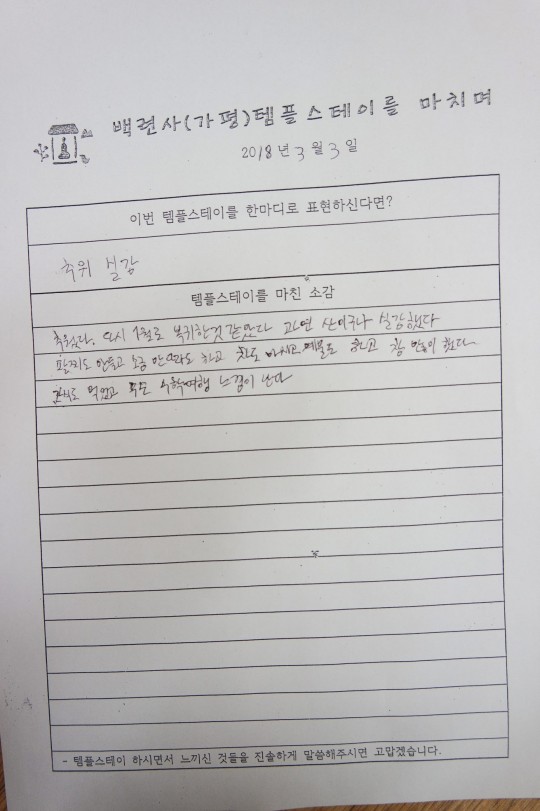 백련사(가평)템플스테이를 마치며
2018년 3월 3일
이번 템플스테이를 한마디로 표현하신다면?
추위 실감
템플스테이를 마친 소감
추웠다. 다시 1월로 복귀한것 같았다 과연 산이구나 실감했다
팔찌도 만들고 도 하고 차도 마시고 예불도 하고 참 많이 했다
간식도 먹었고 수학여행 느낌이 난다
- 템플스테이 하시면서 느끼신 것들을 진솔하게 말씀해주시면 고맙겠습니다.